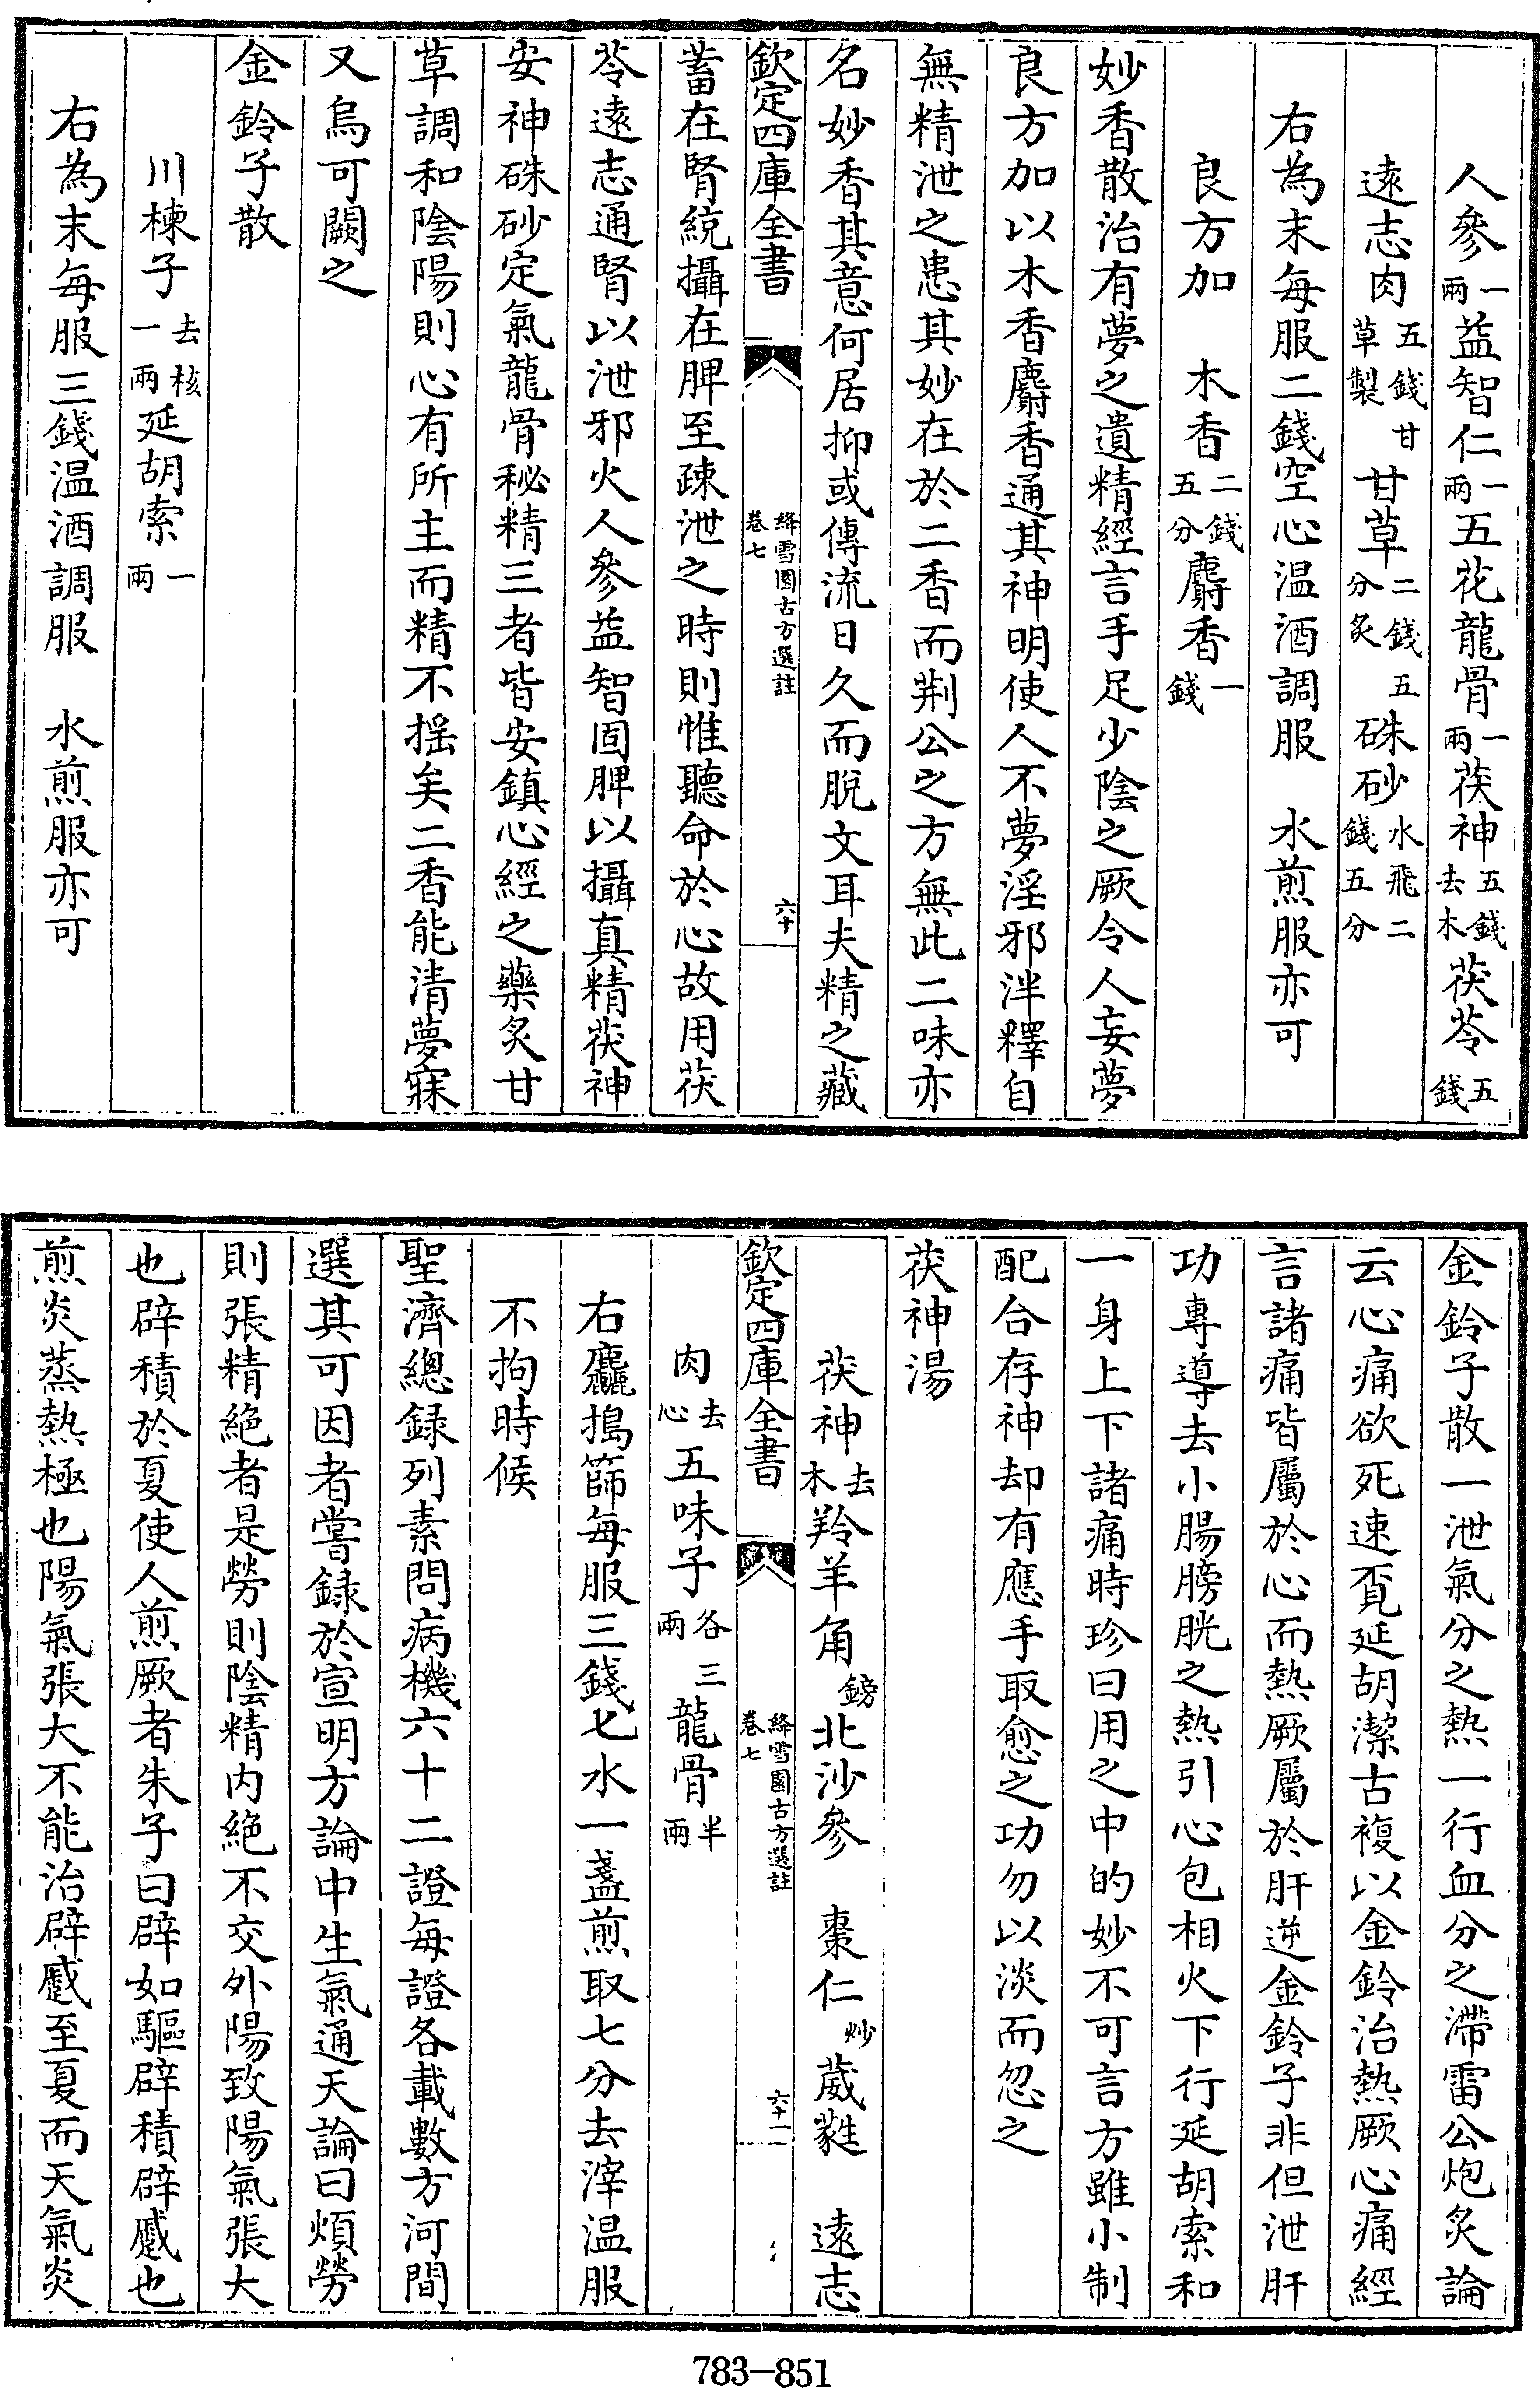 人參一兩益智仁一兩五花龍骨一兩茯神五錢去木茯苓五錢
逺志肉五錢甘草製甘草二錢五分炙硃砂水飛二錢五分
右為末每服二錢空心温酒調服　水煎服亦可
良方加　木香二錢五分麝香一錢
妙香散治有夢之遺精經言手足少陰之厥令人妄夢
良方加以木香麝香通其神明使人不夢淫邪泮釋自
無精泄之患其妙在於二香而荆公之方無此二味亦
名妙香其意何居抑或傳流日久而脱文耳夫精之藏
欽定四庫全書　絳雪園古方選註卷七　六十
蓄在腎統攝在脾至疎泄之時則惟聽命於心故用茯
苓逺志通腎以泄邪火人參益智固脾以攝真精茯神
安神硃砂定氣龍骨秘精三者皆安鎮心經之藥炙甘
草調和陰陽則心有所主而精不揺矣二香能清夢寐
又烏可闕之
金鈴子散
川楝子去核一兩延胡索一兩
右為末每服三錢温酒調服　水煎服亦可
金鈴子散一泄氣分之熱一行血分之滯雷公炮炙論
云心痛欲死速覔延胡潔古複以金鈴治熱厥心痛經
言諸痛皆屬於心而熱厥屬於肝逆金鈴子非但泄肝
功専導去小腸膀胱之熱引心包相火下行延胡索和
一身上下諸痛時珍曰用之中的妙不可言方雖小制
配合存神却有應手取愈之功勿以淡而忽之
茯神湯
茯神去木羚羊角鎊北沙參　棗仁炒葳蕤　逺志
欽定四庫全書　絳雪園古方選註卷七　六十一
肉去心五味子各三兩龍骨半兩
右麤搗篩每服三錢七水一盞煎取七分去滓温服
不拘時候
聖濟總録列素問病機六十二證每證各載數方河間
選其可因者嘗録於宣明方論中生氣通天論曰煩勞
則張精絶者是勞則陰精内絶不交外陽致陽氣張大
也辟積於夏使人煎厥者朱子曰辟如驅辟積辟蹙也
煎炎蒸熱極也陽氣張大不能治辟蹙至夏而天氣炎
783-851